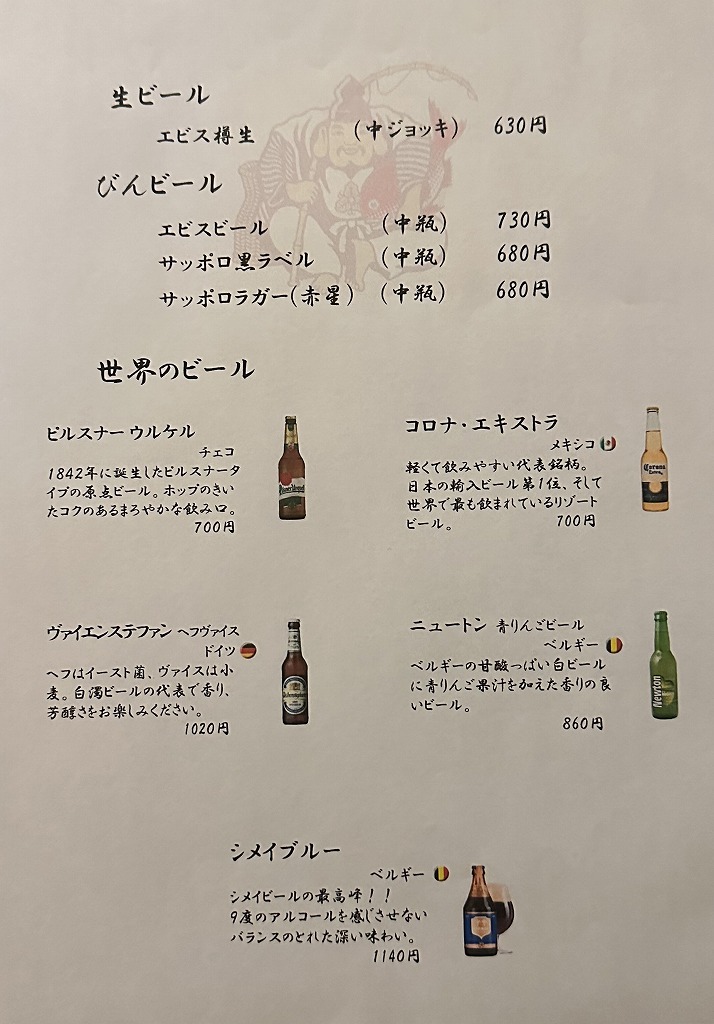 生ビール
エビス樽生 (中ジョッキ) 630円
びんビール
エビスビール (中瓶) 730円
サッポロ黒ラベル (中瓶) 680円
サッポロラガー(赤星) (中瓶) 680円
世界のビール
ピルスナーウルケル
チェコ
1842年に誕生したピルスナータ
イプの原点ビール。ホップのきい
たコクのあるまろやかな飲み口。
700円
コロナ・エキストラ
メキシコ
軽くて飲みやすい代表銘柄。
日本の輸入ビール第1位、そして
世界で最も飲まれているリゾート
ビール。 700円
Corona
Extra
ヴァイエンステファン ヘフヴァイス
ドイツ
ヘフはイースト菌、ヴァイスは小
麦。白濁ビールの代表で香り、
芳醇さをお楽しみください。
1020円
ニュートン 青りんごビール
ベルギー
ベルギーの甘酸っぱい白ビール
に青りんご果汁を加えた香りの良
いビール。
860円
Newton
シメイブルー
ベルギー
シメイビールの最高峰！！
9度のアルコールを感じさせない
バランスのとれた深い味わい。
1140円